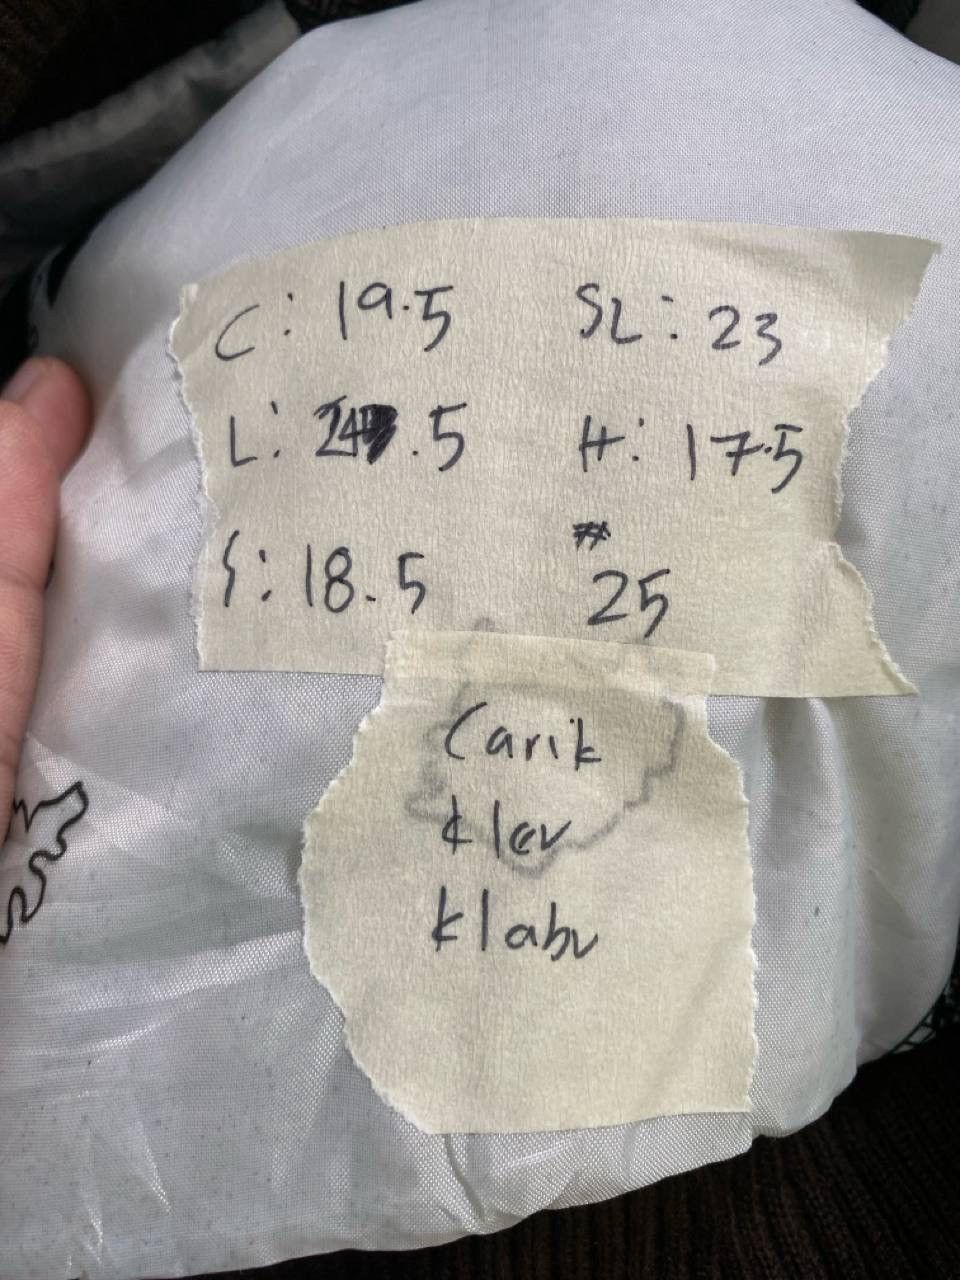 C: 19.5 SL: 23
L: .5 H: 17.5
S: 18.5 # 25
Carik
klev
klabu